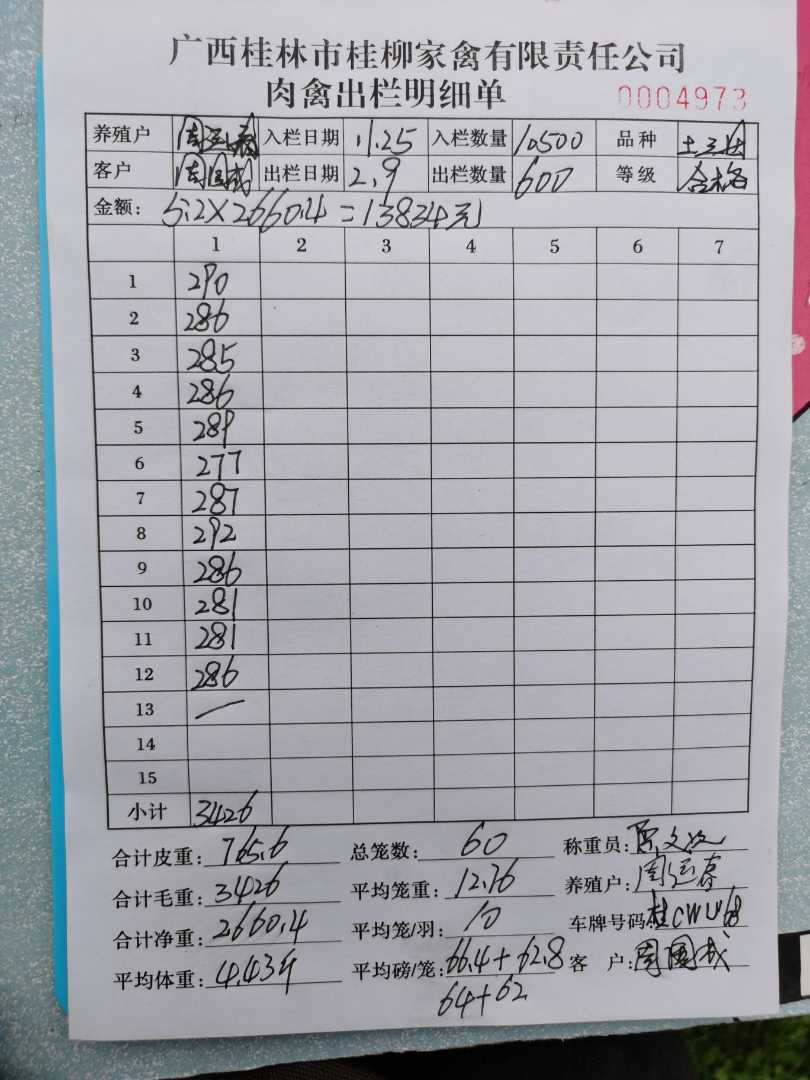 广西桂林市桂柳家禽有限责任公司
肉禽出栏明细单 0004973
养殖户 周运春 入栏日期 11.25 入栏数量 10500 品种
客户 周国成 出栏日期 2.9 出栏数量 600 等级 合格
金额: 5.2×2660.4=13834元
1 2 3 4 5 6 7
1 290
2 286
3 285
4 286
5 289
6 277
7 287
8 292
9 286
10 281
11 281
12 286
13 —
14
15
小计 3426
合计皮重: 765.6 总笼数: 60 称重员:
合计毛重: 3426 平均笼重: 12.76 养殖户: 周运春
合计净重: 2660.4 平均笼/羽: 10 车牌号码
平均体重: 4.43斤 平均磅/笼: 66.4+62.8 客 户: 周国成
64+62